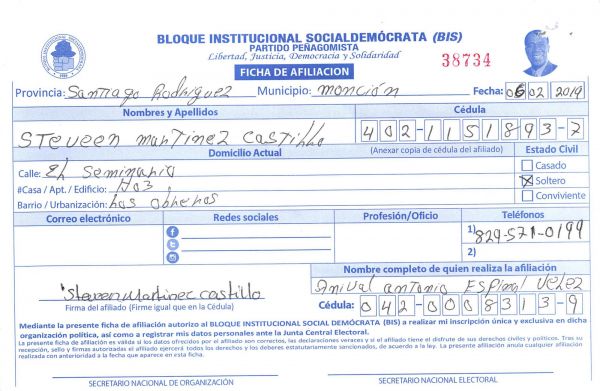 BLOQUE INSTITUCIONAL SOCIALDEMÓCRATA (BIS)
PARTIDO PEÑAGOMISTA
Libertad, Justicia, Democracia y Solidaridad
38734
FICHA DE AFILIACION
Provincia: Santiago Rodriguez Municipio: monción Fecha: 06 02 2019
Nombres y Apellidos Cédula
Steveen martinez castillo 402-1151893-7
Domicilio Actual (Anexar copia de cédula del afiliado) Estado Civil
Calle: El Seminario Casado
#Casa / Apt. / Edificio: Soltero
Barrio / Urbanización: Los obreros Conviviente
Correo electrónico Redes sociales Profesión/Oficio Teléfonos
1) 829-571-0199
2)
Nombre completo de quien realiza la afiliación
Steveen Martinez castillo Anival antonio Espinal Velez
Firma del afiliado (Firme igual que en la Cédula) Cédula: 042-0008313-9
Mediante la presente ficha de afiliación autorizo al BLOQUE INSTITUCIONAL SOCIAL DEMÓCRATA (BIS) a realizar mi inscripción única y exclusiva en dicha
organización política, así como a registrar mis datos personales ante la Junta Central Electoral.
La presente ficha de afiliación es válida si los datos ofrecidos por el afiliado son correctos, las declaraciones veraces y si el afiliado tiene el disfrute de sus derechos civiles y políticos. Tras su
recepción, sello y firmas autorizadas el afiliado ejercerá todos los derechos y los deberes estatutariamente sancionados, de acuerdo a la ley. La presente afiliación anula cualquier afiliación
realizada con anterioridad a la fecha que aparece en esta ficha.
SECRETARIO NACIONAL DE ORGANIZACIÓN SECRETARIO NACIONAL ELECTORAL